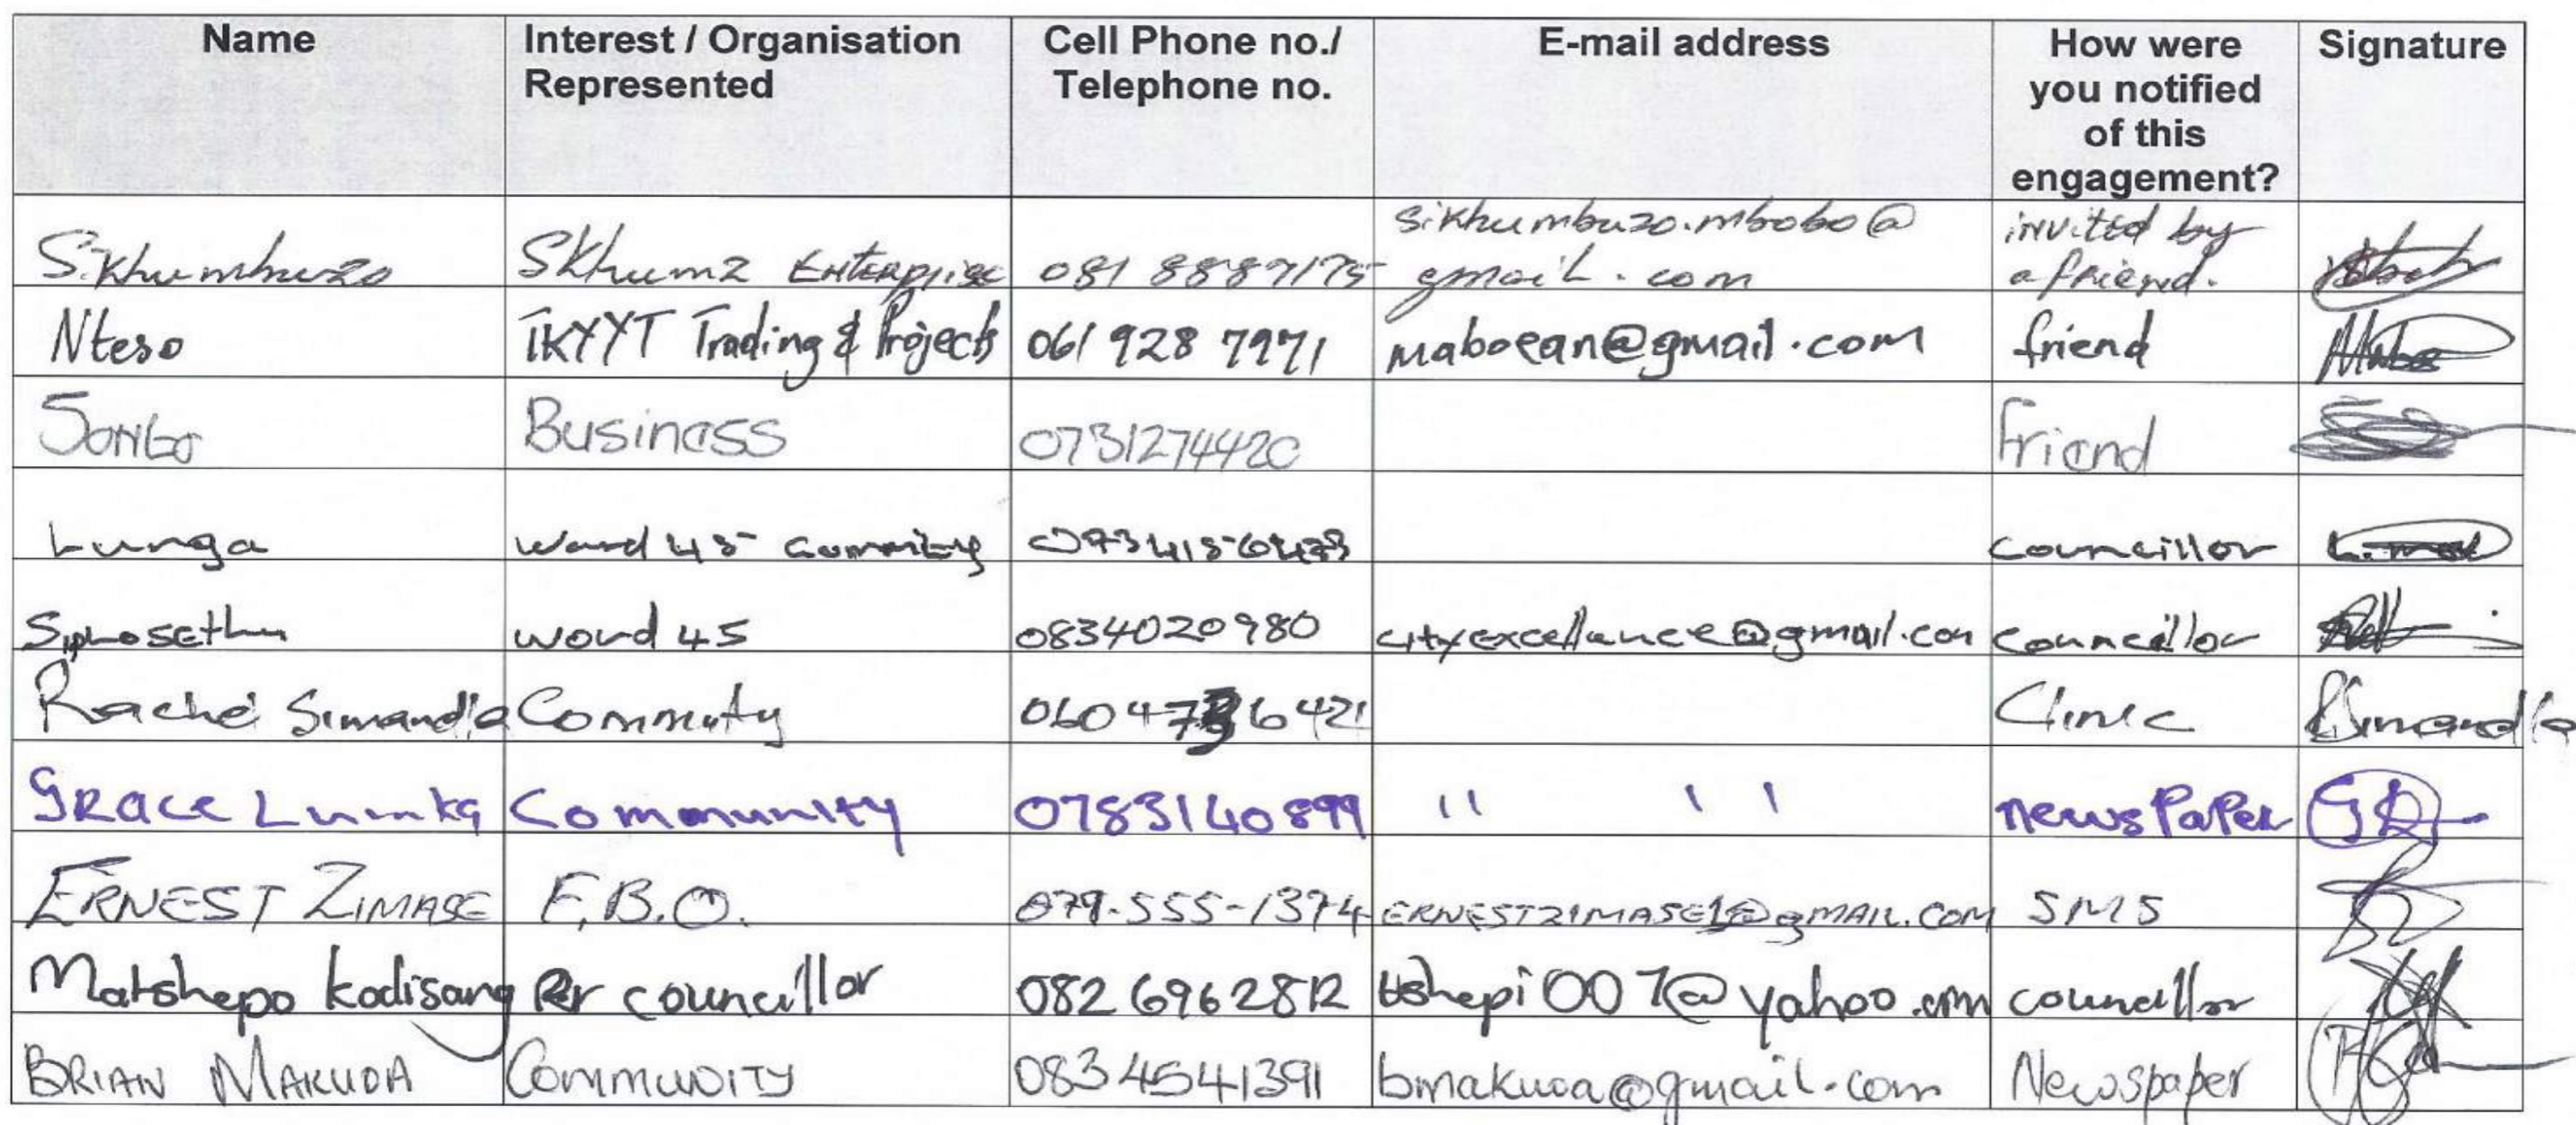 Name Interest / Organisation Represented Cell Phone no./ Telephone no. E-mail address How were you notified of this engagement? Signature
S.Khumbuzo SKhumz Enterprise 081 8887175 sikhumbuzo.mbobo@gmail.com invited by a friend.
Nteso TKYYT Trading & Projects 061 928 7971 maboean@gmail.com friend
Business 0731274420 friend
Lunga Ward 45 councillor
Siphosethu Word 45 0834020980 cityexcellance@gmail.com councillor
Simandla Clinic
GRACE Community 0783140899 " " newspaper
ERNEST ZIMASE F.B.O. 079-555-1374 ERNESTZIMASE1@gMAIL.COM SMS
Matshepo Kodisang Pr councillor 082 696 2812 tshepi007@yahoo.com councillor
BRIAN MAKUDA COMMUNITY 083 4541391 Newspaper